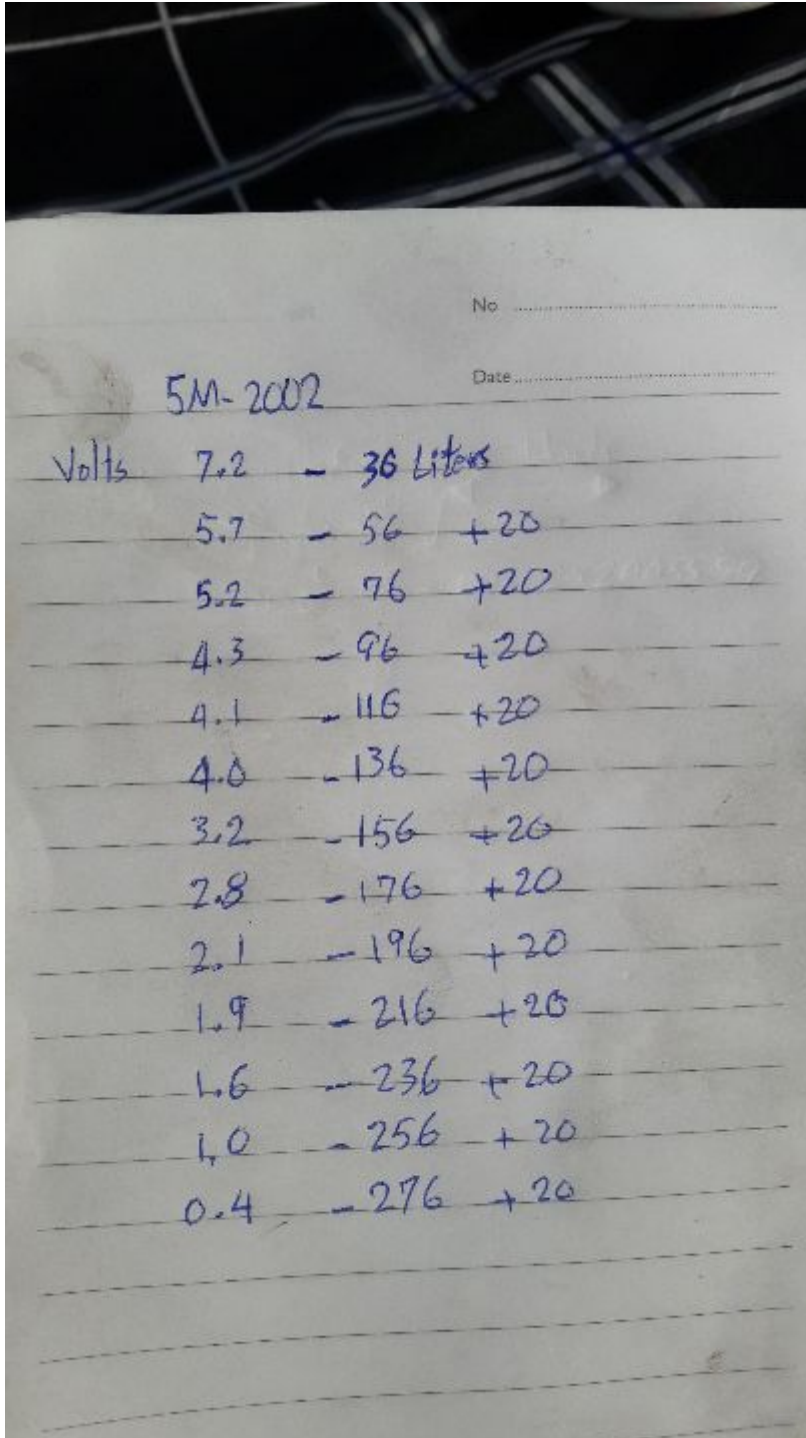 No
Date
5M-2002
Volts 7.2 - 36 Liters
5.7 - 56 +20
5.2 - 76 +20
4.3 - 96 +20
4.1 - 116 +20
4.0 - 136 +20
3.2 - 156 +20
2.8 - 176 +20
2.1 - 196 +20
1.9 - 216 +20
1.6 - 236 +20
1,0 - 256 +20
0.4 - 276 +20